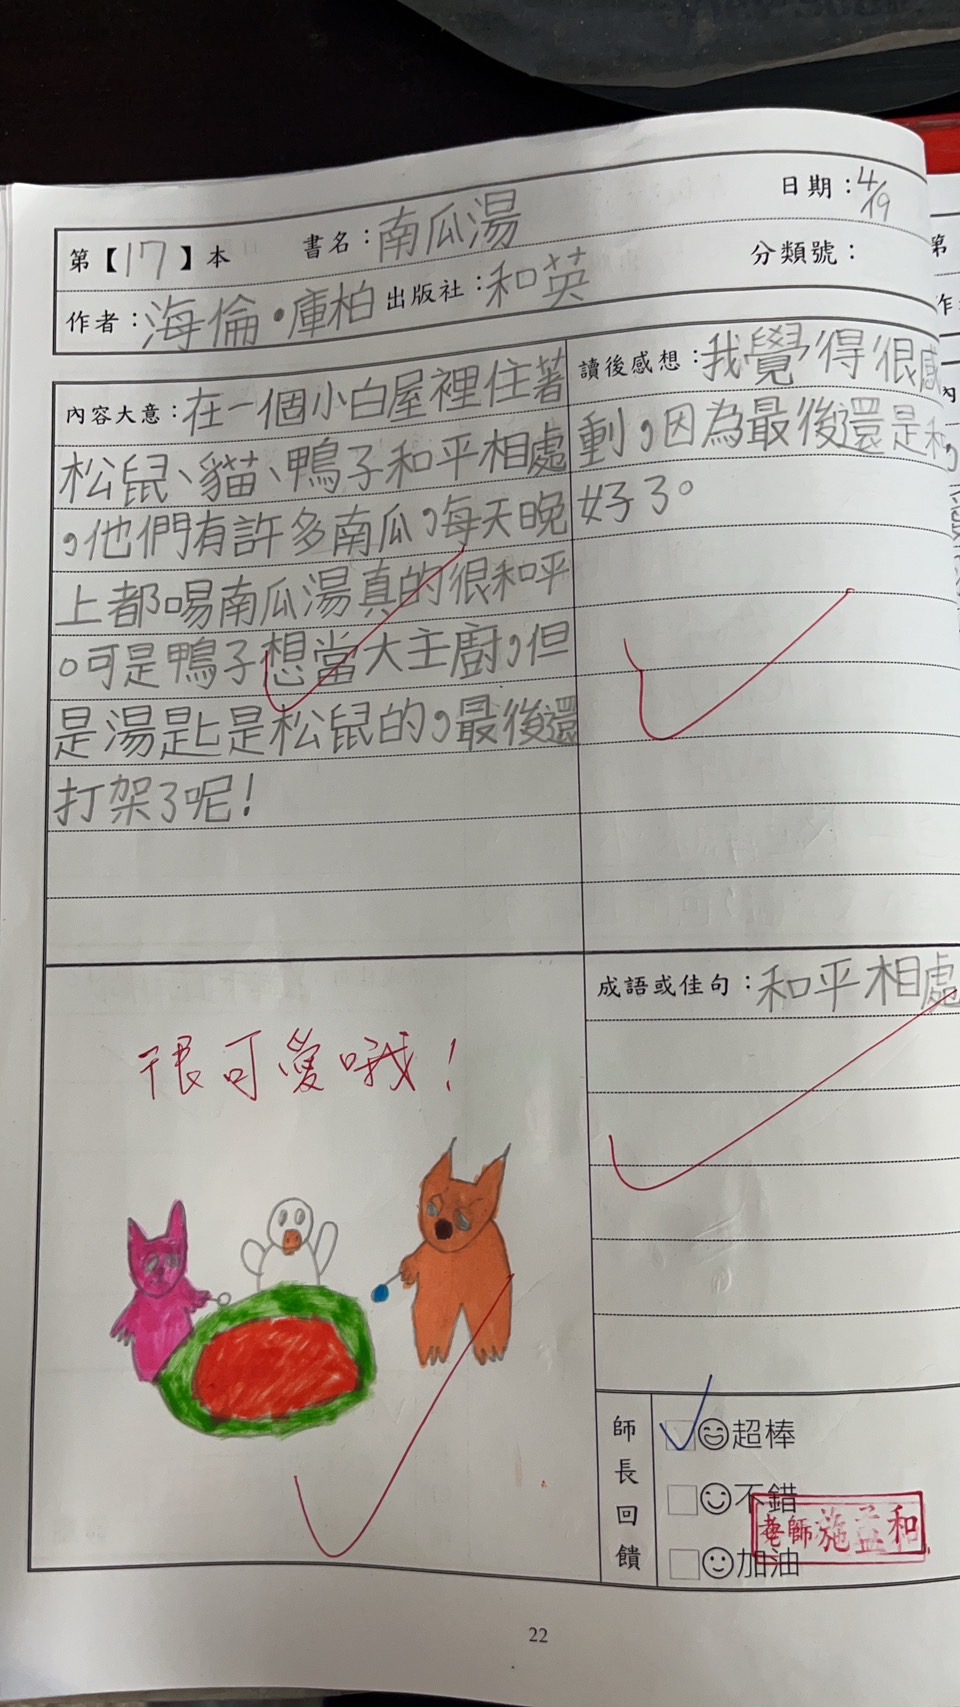 日期：4/19
第【17】本 書名：南瓜湯
分類號：
作者：海倫·庫柏 出版社：和英
內容大意：在一個小白屋裡住著
松鼠、貓、鴨子和平相處
，他們有許多南瓜，每天晚
上都喝南瓜湯真的很和平
。可是鴨子想當大主廚，但
是湯匙是松鼠的，最後還
打架了呢！
讀後感想：我覺得很感
動，因為最後還是和
好了。
很可愛哦！
成語或佳句：和平相處
師長回饋
超棒
不錯
加油
老師施益和
22